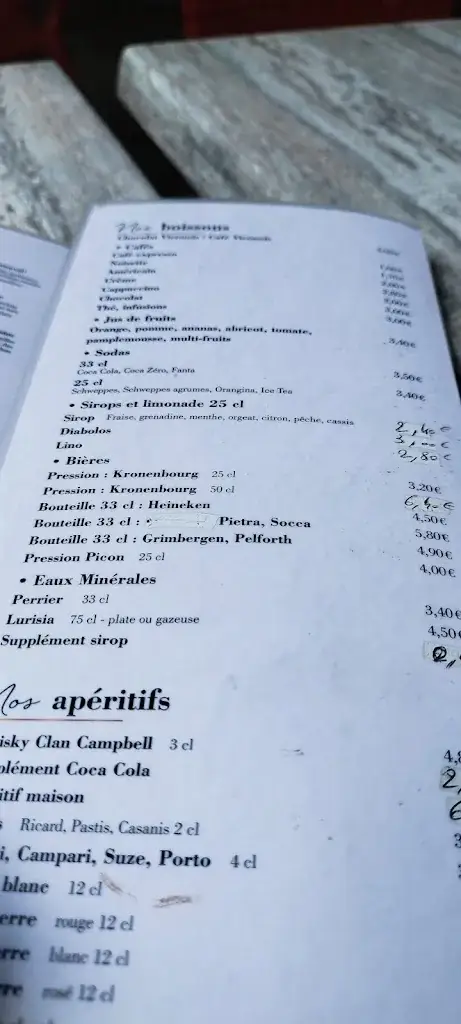 Nos boissons
Chocolat Viennois / Café Viennois
• Cafés
Café expresso
Noisette
Américain
Crème
Cappuccino
Chocolat
Thé, infusions
3,00€
• Jus de fruits
Orange, pomme, ananas, abricot, tomate,
pamplemousse, multi-fruits 3,40€
• Sodas
33 cl
Coca Cola, Coca Zéro, Fanta 3,50€
25 cl
Schweppes, Schweppes agrumes, Orangina, Ice Tea 3,40€
• Sirops et limonade 25 cl
Sirop Fraise, grenadine, menthe, orgeat, citron, pêche, cassis 2,40€
Diabolos 3,00€
Lino 2,80€
• Bières
Pression : Kronenbourg 25 cl 3,20€
Pression : Kronenbourg 50 cl 6,40€
Bouteille 33 cl : Heineken 4,50€
Bouteille 33 cl : Pietra, Socca 5,80€
Bouteille 33 cl : Grimbergen, Pelforth 4,90€
Pression Picon 25 cl 4,00€
• Eaux Minérales
Perrier 33 cl 3,40€
Lurisia 75 cl - plate ou gazeuse 4,50€
Supplément sirop 0,
Nos apéritifs
isky Clan Campbell 3 cl 4,8
plément Coca Cola 2,
itif maison 6
s Ricard, Pastis, Casanis 2 cl 3
i, Campari, Suze, Porto 4 cl
blanc 12 cl
erre rouge 12 cl
rre blanc 12 cl
rre rosé 12 cl